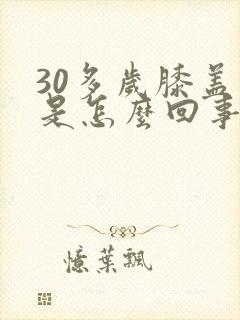 30多歲膝盖
是怎麼回事
憶葉飄